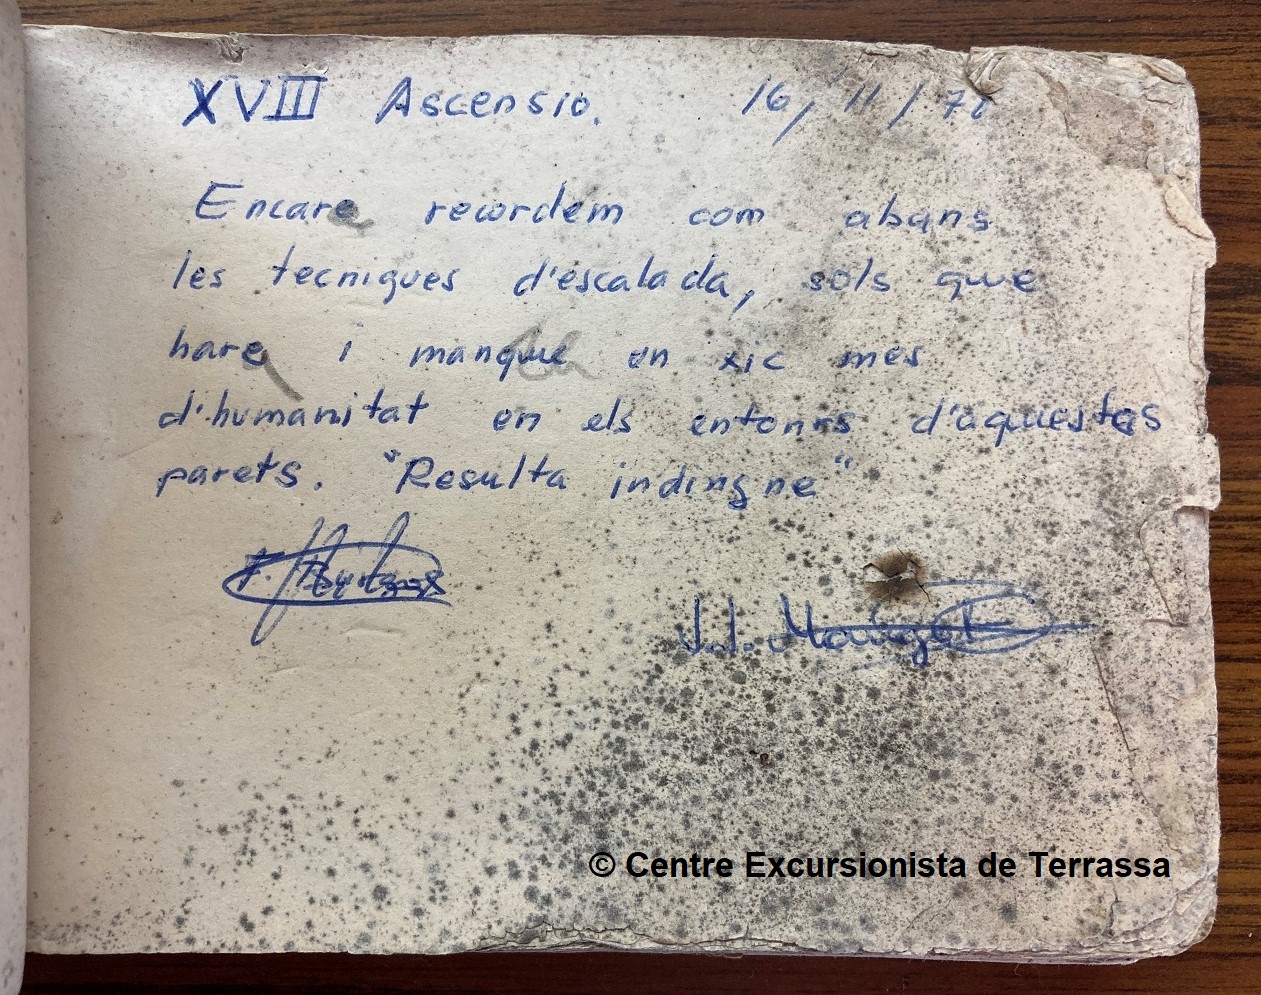 XVIII Ascensio. 16/11/71
Encare recordem com abans
les tecniques d'escalada, sols que
hare i manque un xic mes
d'humanitat en els entorns d'aquestas
parets. "Resulta indingne"
J.J.
© Centre Excursionista de Terrassa